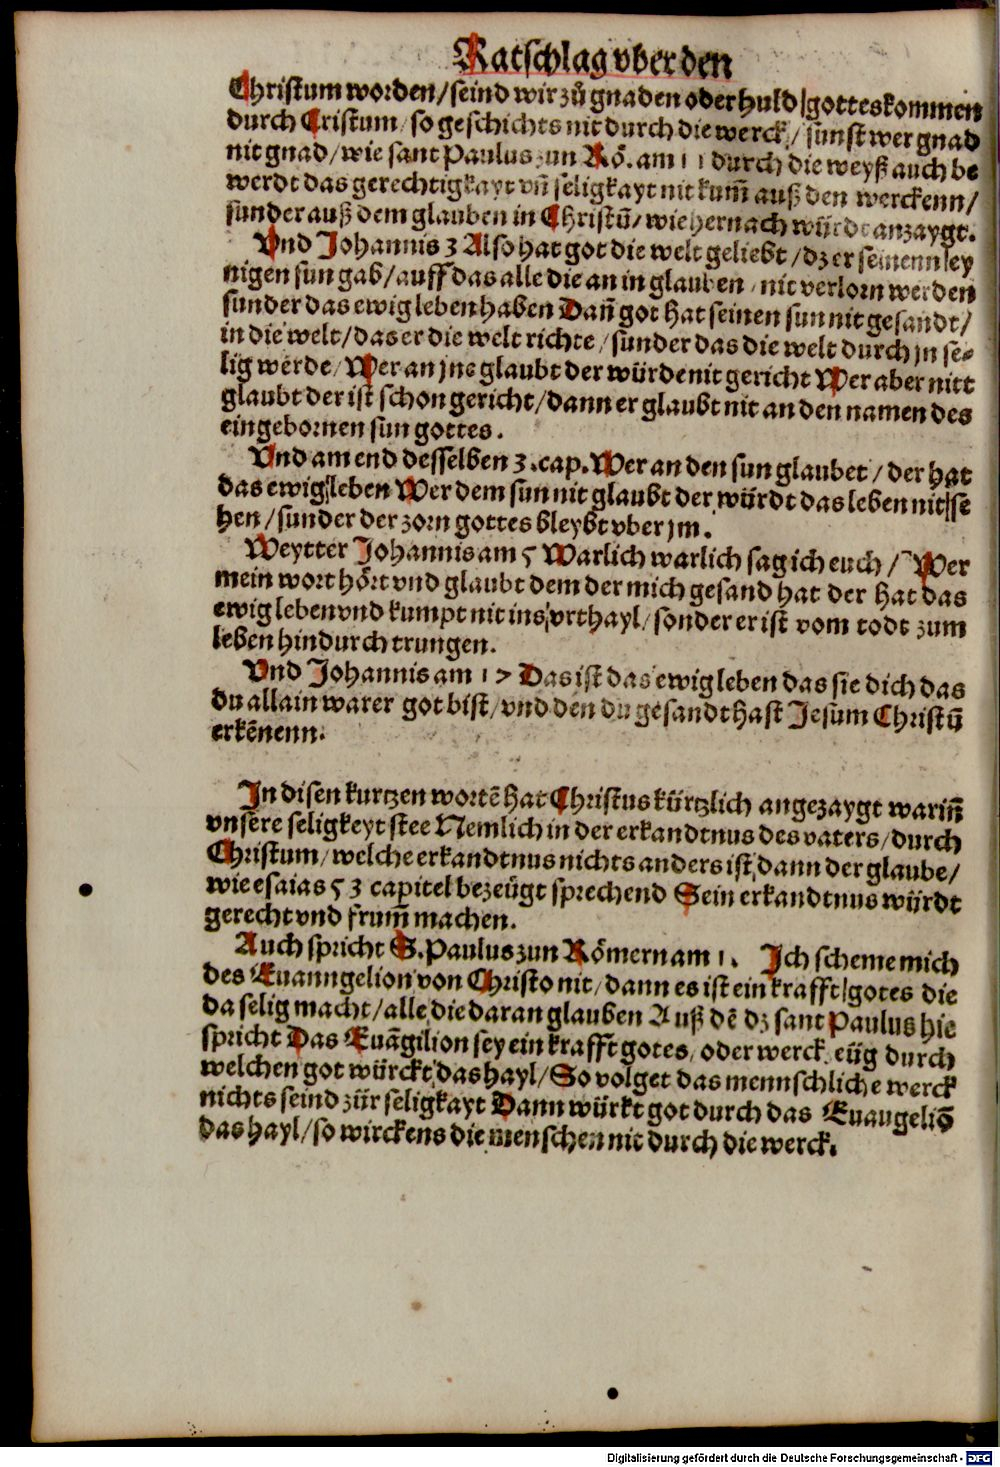 Ratschlag vber den
Christum worden/seind wir zů gnaden oder huld gottes kommen
durch Cristum/so geschichts nit durch die werck/sunst wer gnad
nit gnad/wie sant Paulus zun Rö. am 11 durch die weyß auch be
werdt das gerechtigkayt vñ seligkayt nit kum̃ auß den werckenn/
sunder auß dem glauben in Christũ/wie hernach würdt anzaygt.
Vnd Johannis 3 Also hat got die welt geliebt/dz er seinenn ey
nigen sun gab/auff das alle die an in glauben/nit verlorn werden
sunder das ewig leben haben Dañ got hat seinen sun nit gesandt/
in die welt/das er die welt richte/sunder das die welt durch jn se-
lig werde/Wer an jne glaubt der würde nit gericht Wer aber nitt
glaubt der ist schon gericht/dann er glaubt nit an den namen des
eingebornen sun gottes.
Vnd am end desselben 3.cap. Wer an den sun glaubet/der hat
das ewig leben Wer dem sun nit glaubt der würdt das leben nit se
hen/sunder der zorn gottes bleybt vber jm.
Weytter Johannis am 5 Warlich warlich sag ich euch/Wer
mein wort hört vnd glaubt dem der mich gesand hat der hat das
ewig leben vnd kumpt nit ins vrthayl/sonder er ist vom todt zum
leben hindurch trungen.
Vnd Johannis am 17 Das ist das ewig leben das sie dich das
du allain warer got bist/vnd den du gesandt hast Jesum Christũ
erkẽnenn.
In disen kurtzen wortẽ hat Christus kürtzlich angezaygt wariñ
vnsere seligkeyt stee Nemlich in der erkandtnus des vaters/durch
Christum/welche erkandtnus nichts anders ist dann der glaube/
wie esaias 53 capitel bezeügt sprechend Sein erkandtnus würdt
gerecht vnd frum̃ machen.
Auch spricht S. Paulus zun Römern am 1. Ich scheme mich
des Euanngelion von Christo nit/dann es ist ein krafft gotes die
da selig macht/alle die daran glauben Auß dẽ dz sant Paulus hie
spricht Das Euãgilion sey ein krafft gotes/oder werck eüg durch
welchen got würckt das hayl/So volget das mennschliche werck
nichts seind zür seligkayt Dann würkt got durch das Euangeliõ
das hayl/so wirckens die menschen nit durch die werck.
Digitalisierung gefördert durch die Deutsche Forschungsgemeinschaft - DFG